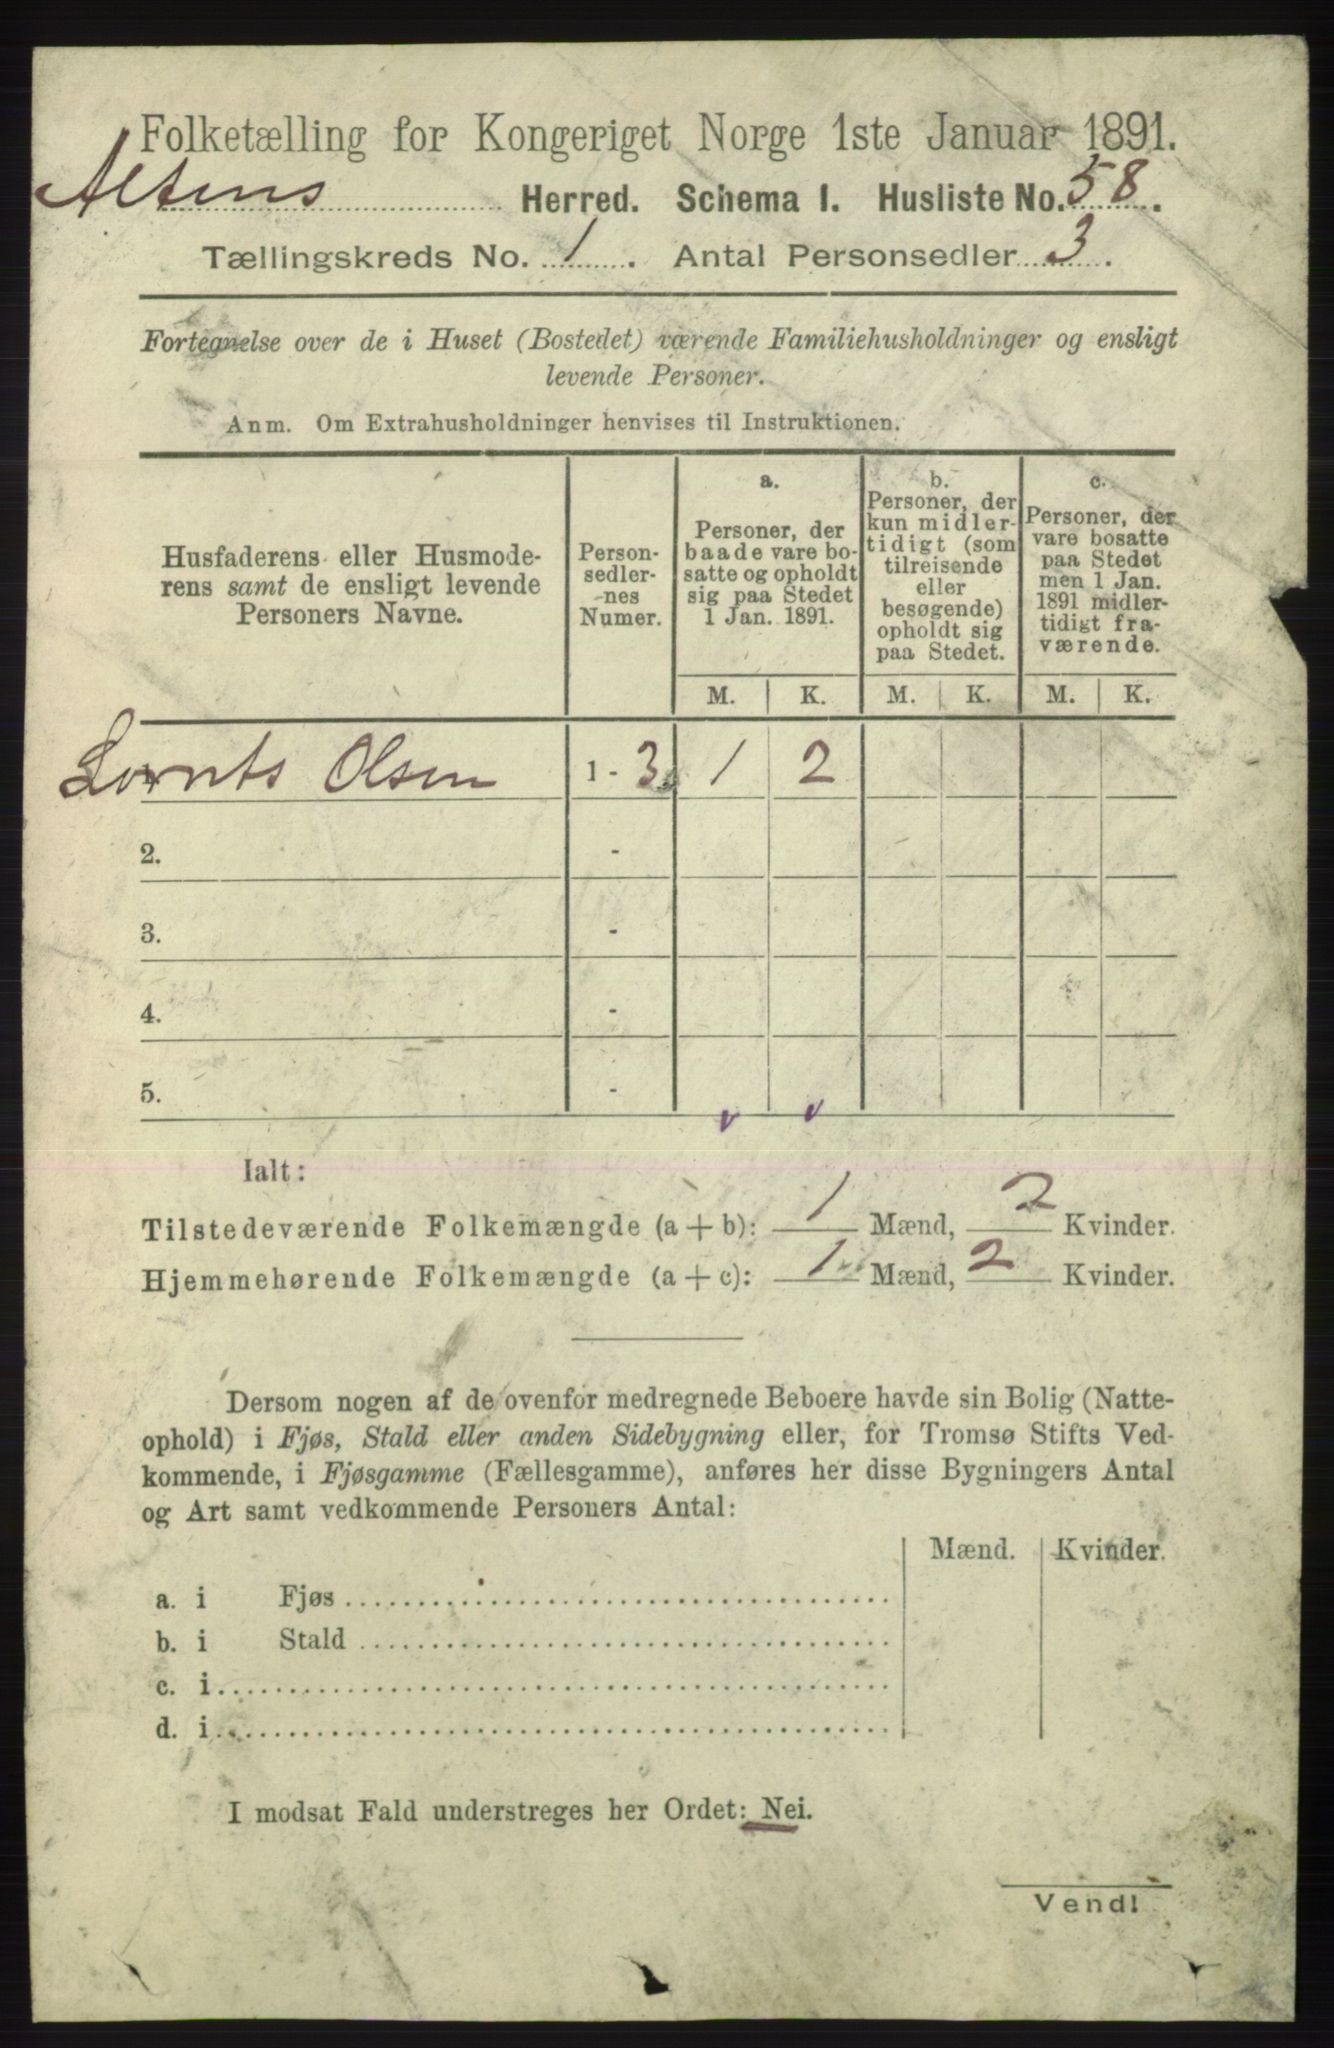 Folketælling for Kongeriget Norge 1ste Januar 1891.
Altens Herred. Schema I. Husliste No. 58.
Tællingskreds No. 1. Antal Personsedler 3.
Fortegnelse over de i Huset (Bostedet) værende Familiehusholdninger og ensligt
levende Personer.
Anm. Om Extrahusholdninger henvises til Instruktionen.
Husfaderens eller Husmode-
rens samt de ensligt levende
Personers Navne.
Person-
sedler-
nes
Numer.
a.
Personer, der
baade vare bo-
satte og opholdt
sig paa Stedet
1 Jan. 1891.
b.
Personer, der
kun midler-
tidigt (som
tilreisende
eller
besøgende)
opholdt sig
paa Stedet.
c.
Personer, der
vare bosatte
paa Stedet
men 1 Jan.
1891 midler-
tidigt fra-
værende.
M. K. M. K. M. K.
Lornts Olsen 1 - 3 1 2
2. -
3. -
4. -
5. -
Ialt:
Tilstedeværende Folkemængde (a + b): 1 Mænd, 2 Kvinder.
Hjemmehørende Folkemængde (a + c): 1 Mænd, 2 Kvinder.
Dersom nogen af de ovenfor medregnede Beboere havde sin Bolig (Natte-
ophold) i Fjøs, Stald eller anden Sidebygning eller, for Tromsø Stifts Ved-
kommende, i Fjøsgamme (Fællesgamme), anføres her disse Bygningers Antal
og Art samt vedkommende Personers Antal:
Mænd. Kvinder.
a. i Fjøs
b. i Stald
c. i
d. i
I modsat Fald understreges her Ordet: Nei.
Vend!